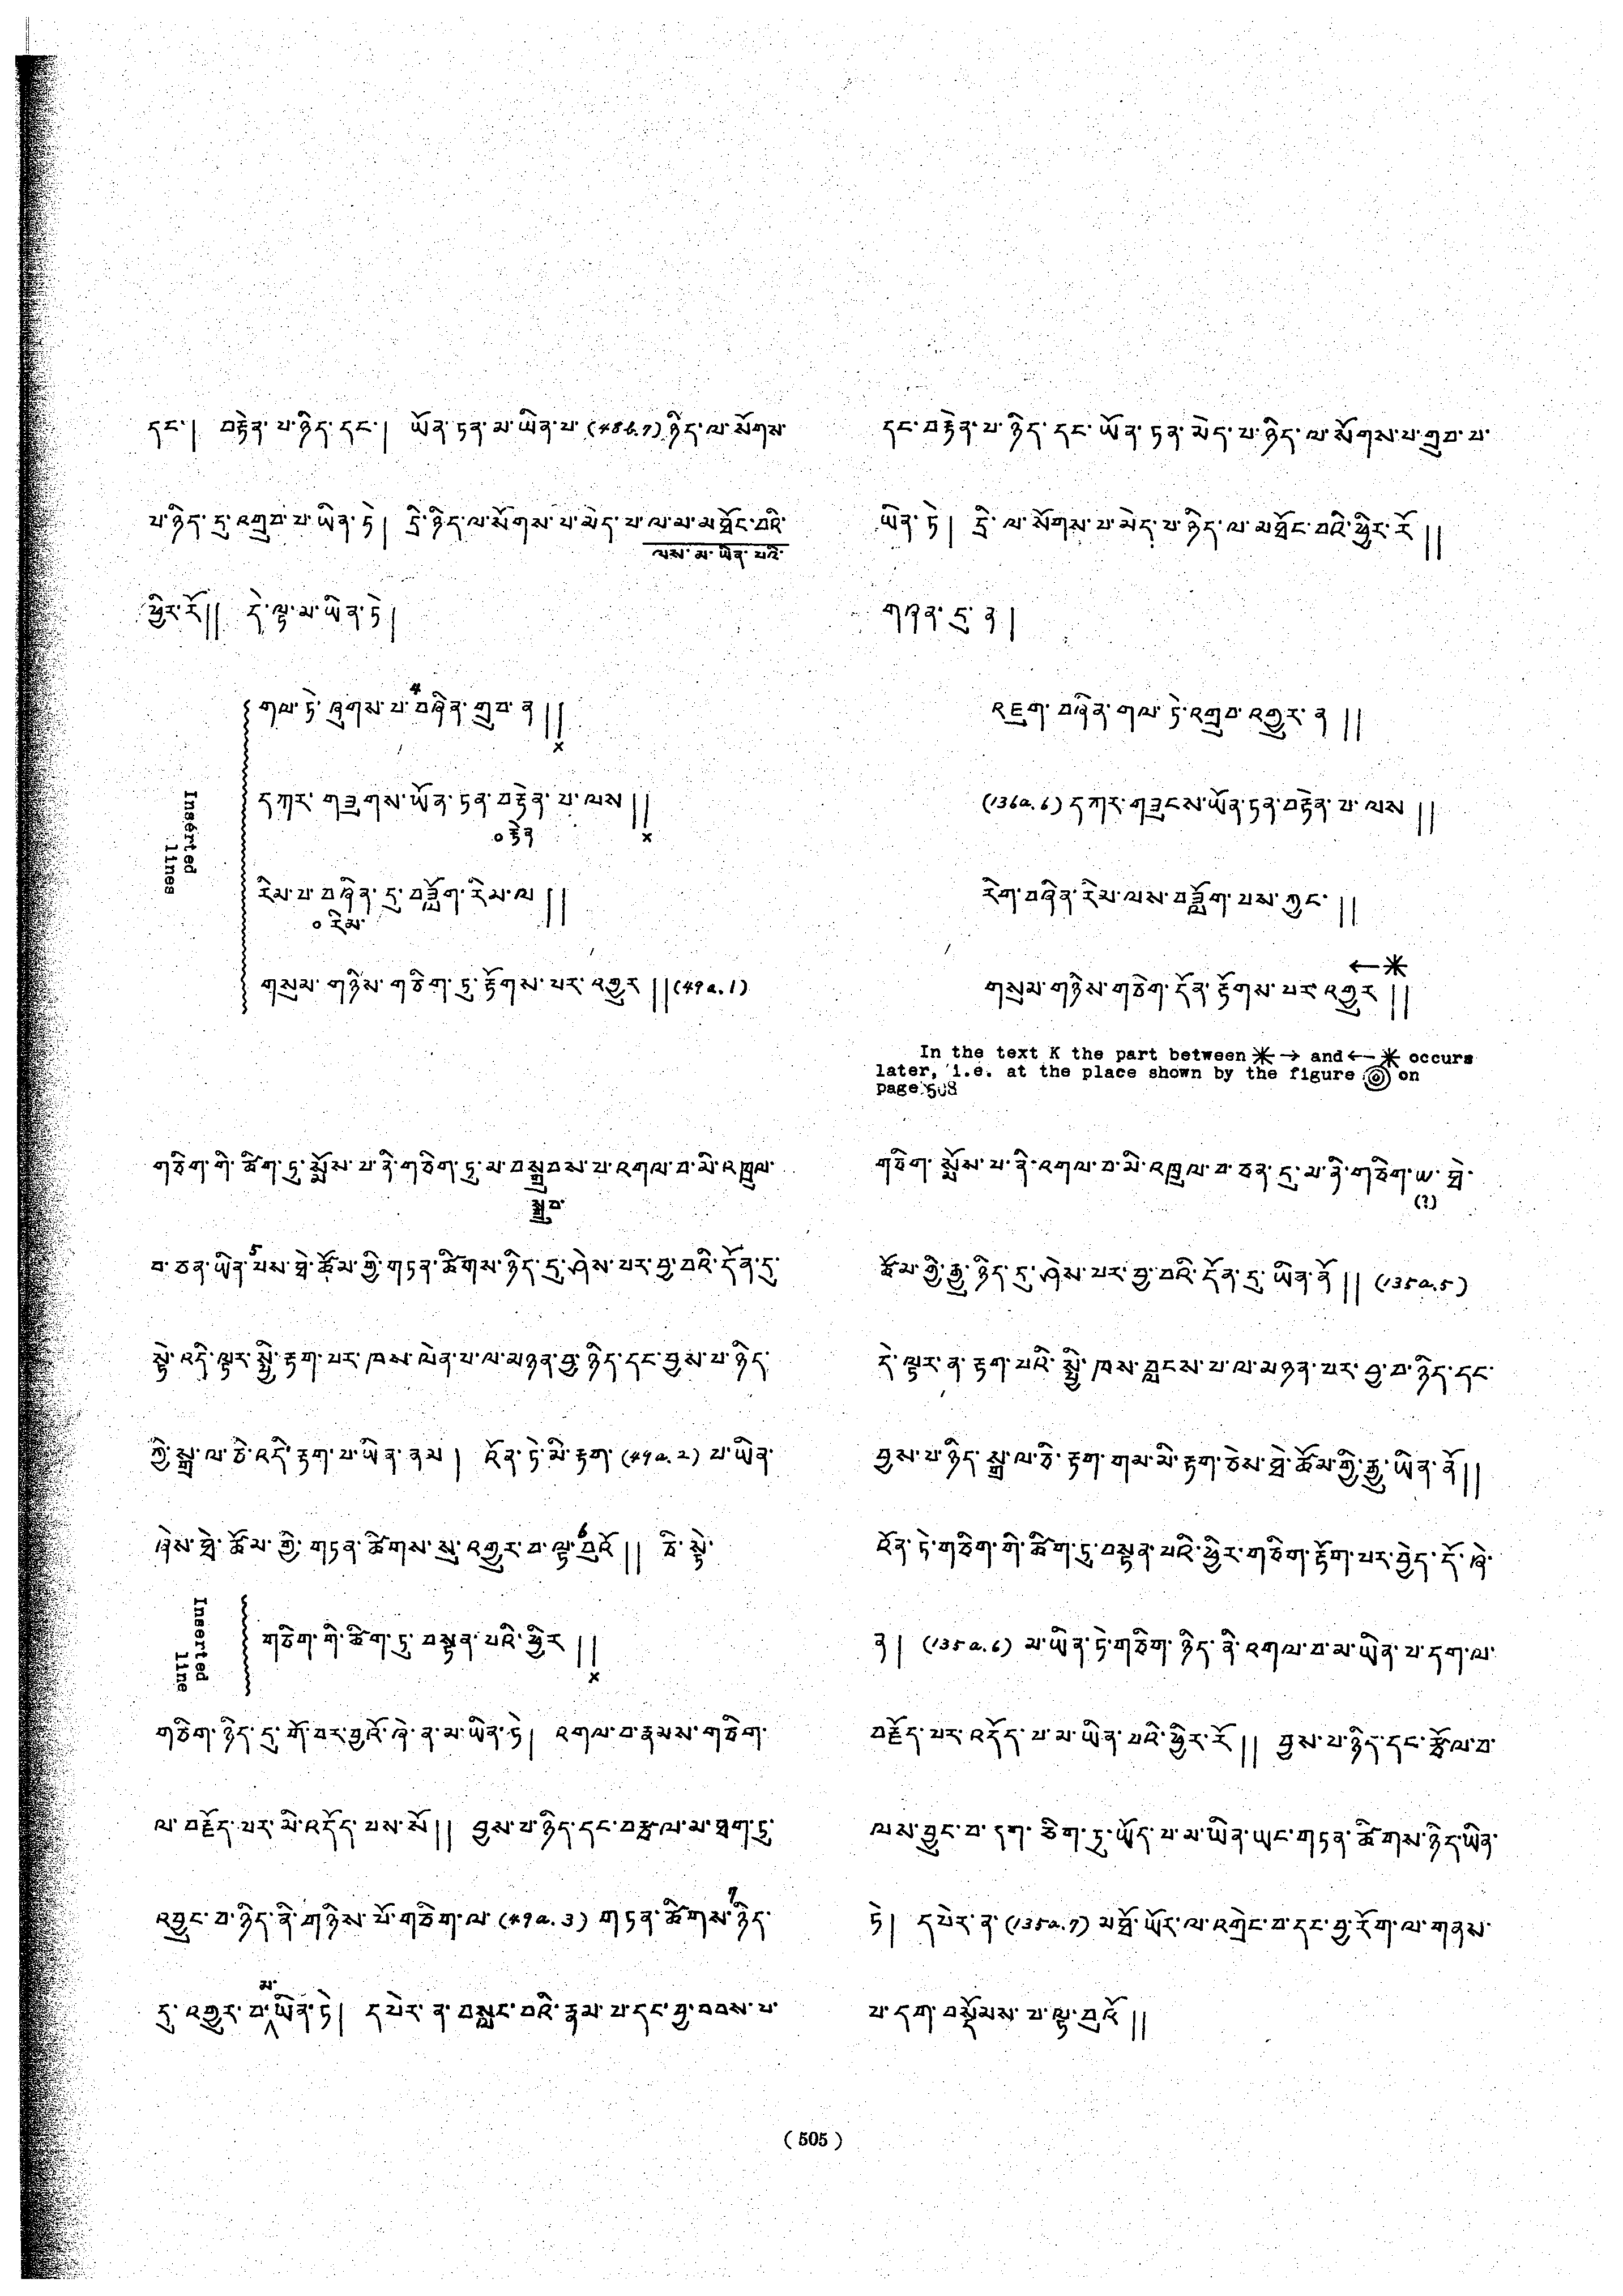 དང་། བརྟེན་པ་ཉིད་དང་། ཡོན་ཏན་མ་ཡིན་པ་ (48b.7) ཉིད་ལ་སོགས་
པ་ཉིད་དུ་འགྲུབ་པ་ཡིན་ཏེ། དྲི་ཉིད་ལ་སོགས་པ་མེད་པ་ལ་མ་མཐོང་བའི་
ལས་མ་ཡིན་པའི་
ཕྱིར་རོ།། དེ་ལྟ་མ་ཡིན་ཏེ།
4
གལ་ཏེ་ཞུགས་པ་བཞིན་གྲུབ་ན།།
x
དཀར་གཟུགས་ཡོན་ཏན་བརྟེན་པ་ལས།།
༠རྟེན x
རིམ་པ་བཞིན་དུ་བཟློག་རིམ་ལ།།
༠རིམ་
གསུམ་གཉིས་གཅིག་ཏུ་རྟོགས་པར་འགྱུར།། (49a.1)
Inserted
lines
གཅིག་གི་ཚིག་ཏུ་སྨོས་པ་ནི་གཅིག་ཏུ་མ་བསྒྲུབས་པ་འགལ་བ་མི་འཁྲུལ་
སྒྲུབ་
5
བ་ཅན་ཡིན་པས་ཐེ་ཚོམ་གྱི་གཏན་ཚིགས་ཉིད་དུ་ཤེས་པར་བྱ་བའི་དོན་དུ་
སྟེ་འདི་ལྟར་སྤྱི་རྟག་པར་ཁས་ལེན་པ་ལ་མཉན་བྱ་ཉིད་དང་བྱས་པ་ཉིད་
ཀྱི་སྒྲ་ལ་ཅི་འདི་རྟག་པ་ཡིན་ནམ། འོན་ཏེ་མི་རྟག་ (49a.2) པ་ཡིན་
6
ཞེས་ཐེ་ཚོམ་གྱི་གཏན་ཚིགས་སུ་འགྱུར་བ་ལྟ་བུའོ།། ཅི་སྟེ་
Inserted
line
གཅིག་གི་ཚིག་ཏུ་བསྟན་པའི་ཕྱིར།།
x
གཅིག་ཉིད་དུ་གོ་བར་བྱའོ་ཞེ་ན་མ་ཡིན་ཏེ། འགལ་བ་རྣམས་གཅིག་
ལ་བརྗོད་པར་མི་འདོད་པས་སོ།། བྱས་པ་ཉིད་དང་བརྩལ་མ་ཐག་ཏུ་
7
འབྱུང་བ་ཉིད་ནི་གཉིས་པོ་གཅིག་ལ་ (49a.3) གཏན་ཚིགས་ཉིད་
མ་
དུ་འགྱུར་བ་ཡིན་ཏེ། དཔེར་ན་བསླང་བའི་རྣམ་པ་དང་བྱ་བབས་པ་
དང་བརྟེན་པ་ཉིད་དང་ཡོན་ཏན་མེད་པ་ཉིད་ལ་སོགས་པ་གྲུབ་པ་
ཡིན་ཏེ། དྲི་ལ་སོགས་པ་མེད་པ་ཉིད་ལ་མཐོང་བའི་ཕྱིར་རོ།།
གཞན་དུ་ན།
འཇུག་བཞིན་གལ་ཏེ་འགྲུབ་འགྱུར་ན།།
(136a.6) དཀར་གཟུངས་ཡོན་ཏན་བརྟེན་པ་ལས།།
རེག་བཞིན་རིམ་ལས་བཟློག་པས་ཀྱང་།།
←✳
གསུམ་གཉིས་གཅིག་དོན་རྟོགས་པར་འགྱུར།།
In the text K the part between ✳→ and ←✳ occurs
later, i.e. at the place shown by the figure ◎ on
page 508
གཅིག་སྨོས་པ་ནི་འགལ་བ་མི་འཁྲུལ་བ་ཅན་དུ་མ་ནི་གཅིག་ཡ་ཐེ་
(?)
ཚོམ་གྱི་རྒྱུ་ཉིད་དུ་ཤེས་པར་བྱ་བའི་དོན་དུ་ཡིན་ནོ།། (135a.5)
དེ་ལྟར་ན་རྟག་པའི་སྤྱི་ཁས་བླངས་པ་ལ་མཉན་པར་བྱ་བ་ཉིད་དང་
བྱས་པ་ཉིད་སྒྲ་ལ་ཅི་རྟག་གམ་མི་རྟག་ཅེས་ཐེ་ཚོམ་གྱི་རྒྱུ་ཡིན་ནོ།།
འོན་ཏེ་གཅིག་གི་ཚིག་ཏུ་བསྟན་པའི་ཕྱིར་གཅིག་རྟོག་པར་བྱེད་དོ་ཞེ་
ན། (135a.6) མ་ཡིན་ཏེ་གཅིག་ཉིད་ནི་འགལ་བ་མ་ཡིན་པ་དག་ལ་
བརྗོད་པར་འདོད་པ་མ་ཡིན་པའི་ཕྱིར་རོ།། བྱས་པ་ཉིད་དང་རྩོལ་བ་
ལས་བྱུང་བ་དག་ཅིག་ཏུ་ཡོད་པ་མ་ཡིན་ཡང་གཏན་ཚིགས་ཉིད་ཡིན་
ཏེ། དཔེར་ན་ (135a.7) མཐོ་ཡོར་ལ་འགྲེང་བ་དང་བྱ་རོག་ལ་གནས་
པ་དག་བསྡོམས་པ་ལྟ་བུའོ།།
( 505 )